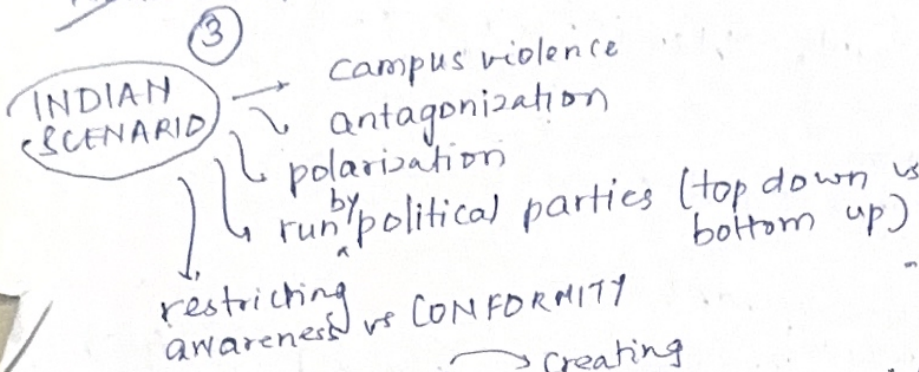 3
INDIAN
SCENARIO
campus violence
antagonization
polarization
run by political parties (top down vs
bottom up)
restricting
awareness vs CONFORMITY
creating